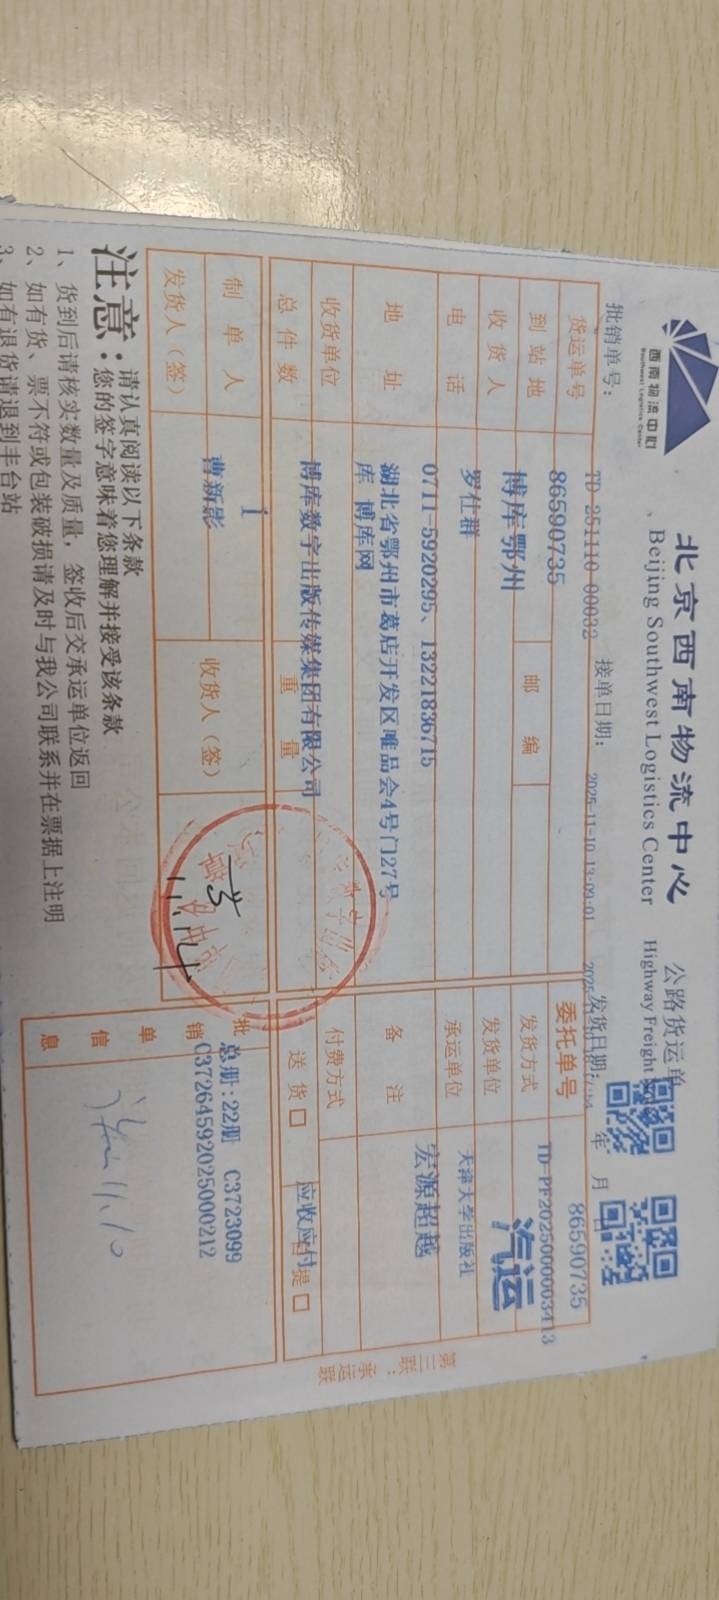 西南物流中心
Southwest Logistics Center
北京西南物流中心
Beijing Southwest Logistics Center
公路货运单
Highway Freight
批销单号：
TD-251110-00032
接单日期：
2025-11-10 13:09:01
发货日期：
年 月 日
货运单号 86590735
委托单号 86590735
TD-PF2025000003413
到站地 博库鄂州
邮编
发货方式 汽运
收货人 罗仕群
发货单位 天津大学出版社
电话 0711-5920295、13221836715
承运单位 宏源超越
地址 湖北省鄂州市葛店开发区唯品会4号门27号
库 博库网
备注
收货单位 博库数字出版传媒集团有限公司
付费方式 应收应付
总件数 1
重量
送货 □
自提 □
制单人 曹新影
收货人（签）
发货人（签）
批销单信息
总册：22册 C3723099
C37264592025000212
11.10
第三联：承运联
注意：
请认真阅读以下条款
您的签字意味着您理解并接受该条款
1、货到后请核实数量及质量，签收后交承运单位返回
2、如有货、票不符或包装破损请及时与我公司联系并在票据上注明
3、如有退货请退到丰台站